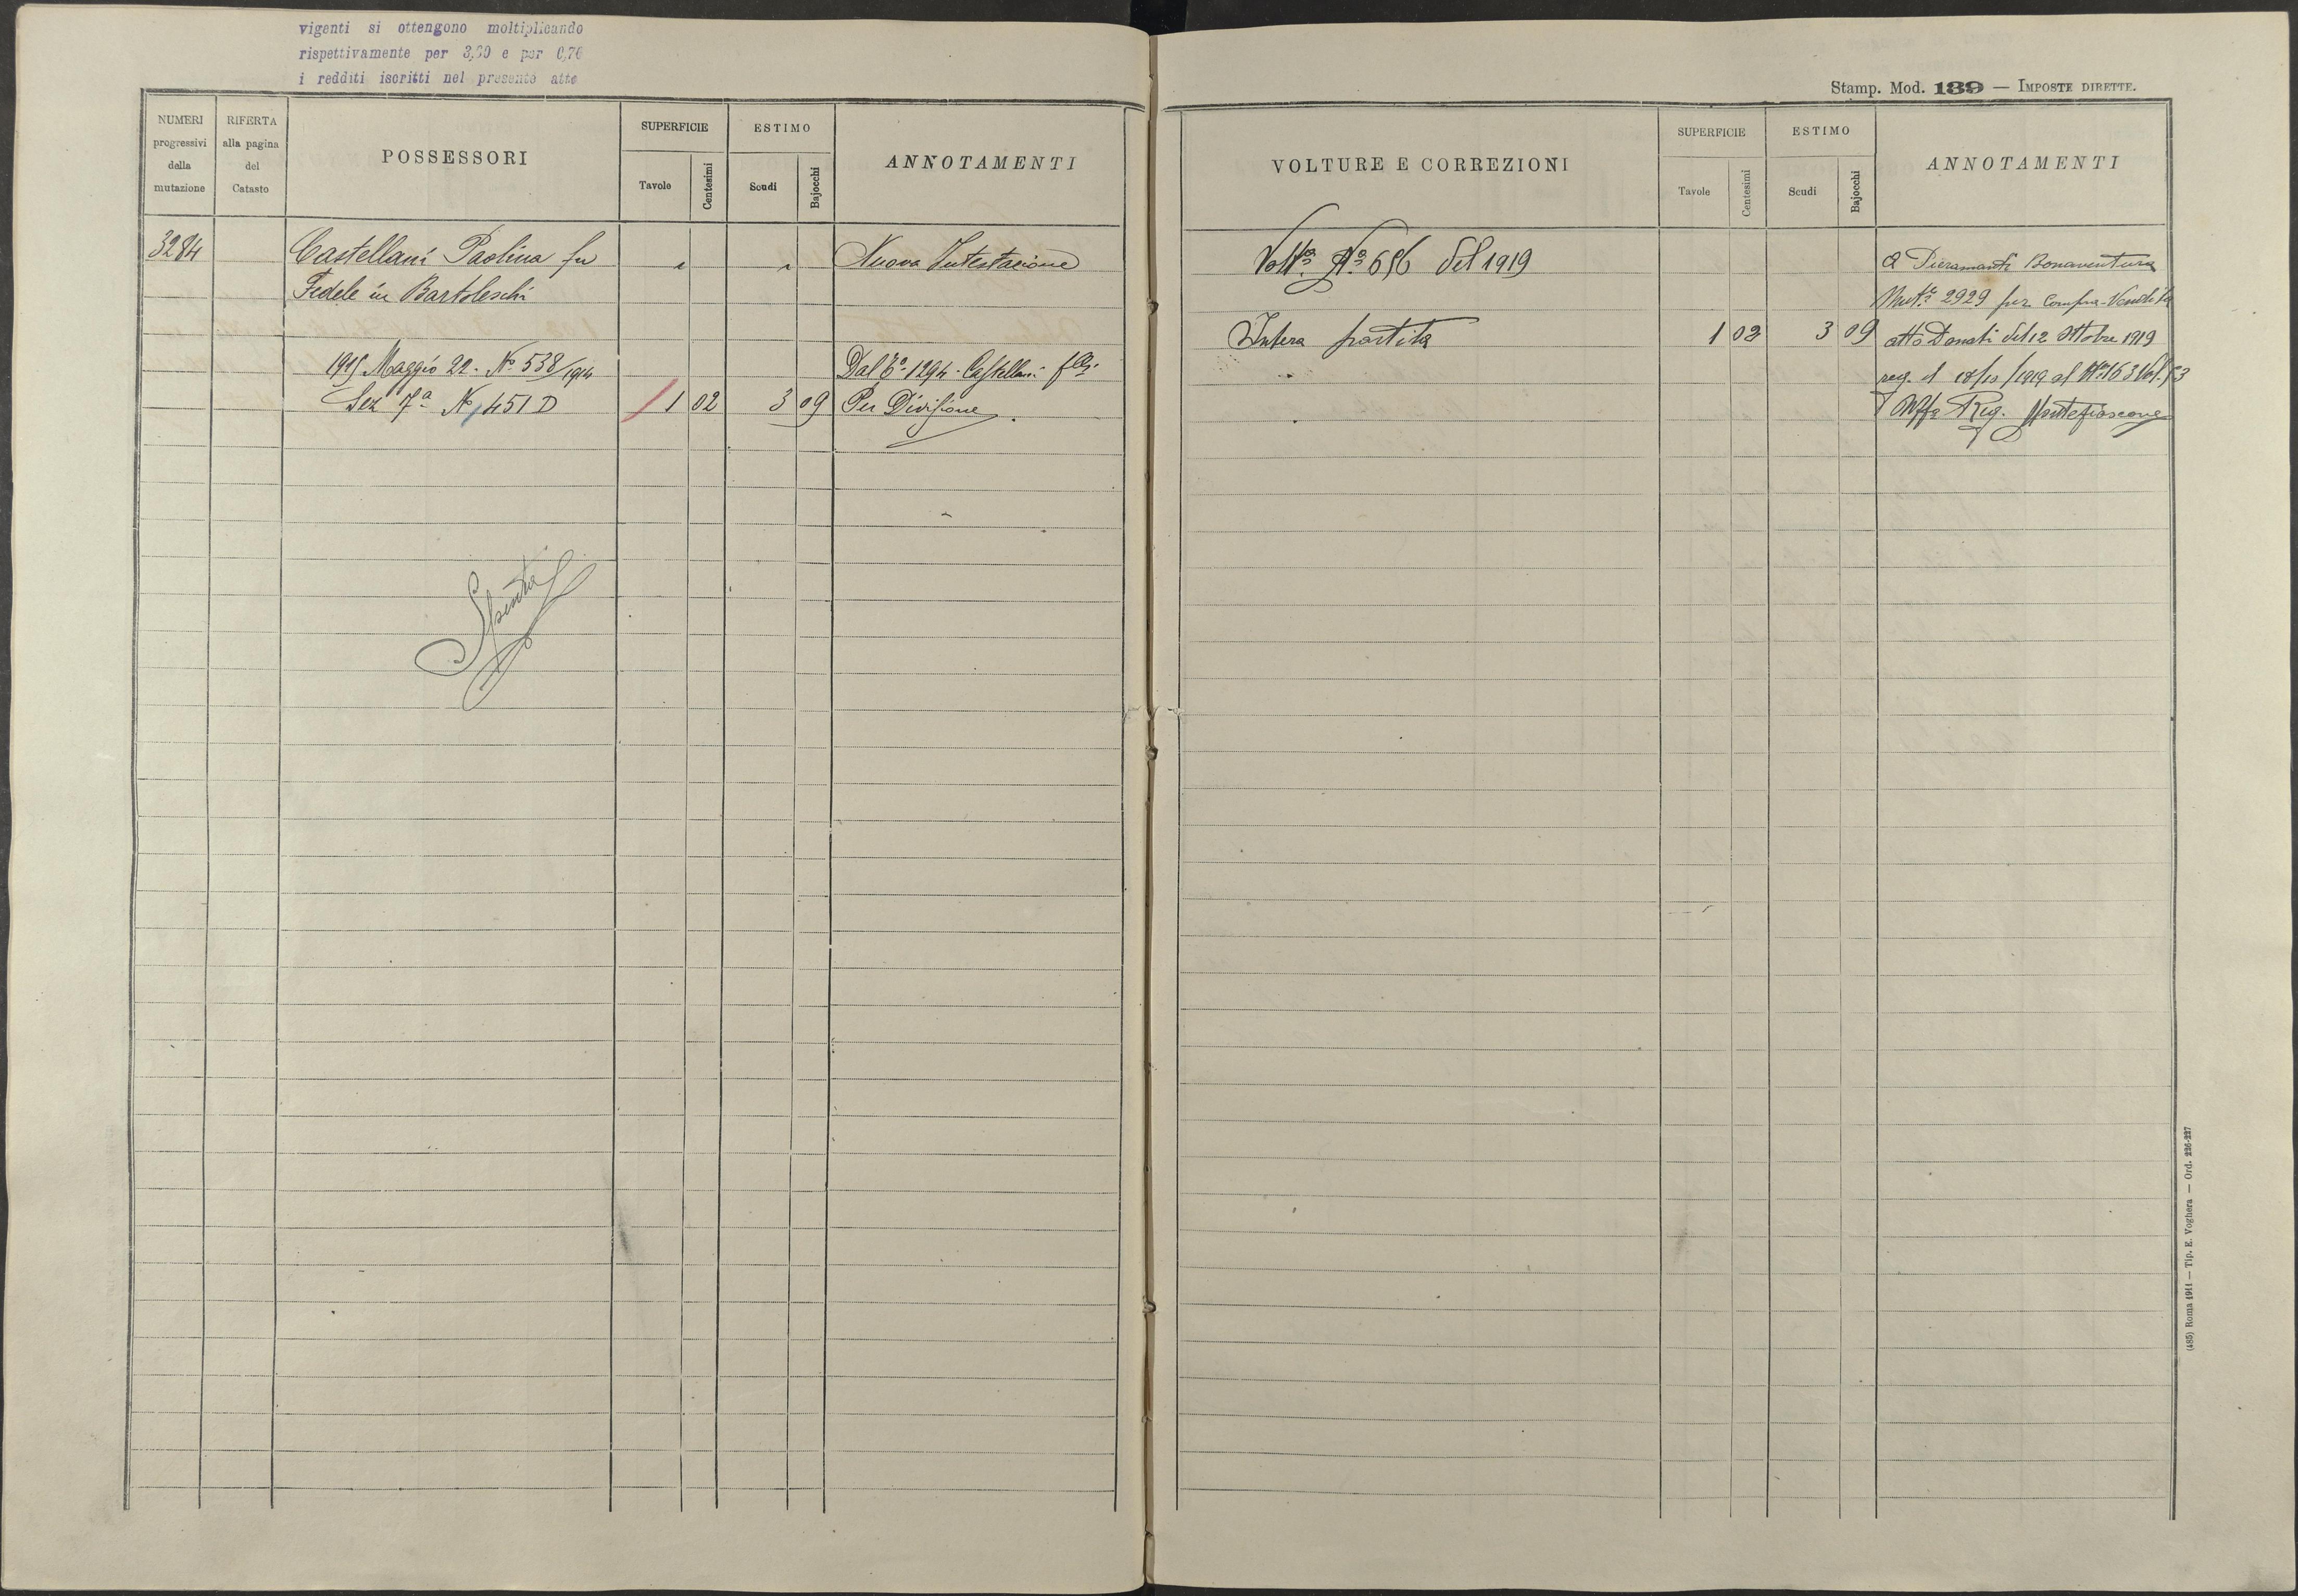 vigenti si ottengono moltiplicando
rispettivamente per 3,60 e per 0,76
i redditi iscritti nel presente atto
NUMERI progressivi della mutazione
RIFERTA alla pagina del Catasto
POSSESSORI
SUPERFICIE
Tavole
Centesimi
ESTIMO
Scudi
Bajocchi
ANNOTAMENTI
3284
Castellani Paolina fu
Nuova Intestazione
Fedele in Bartoleschi
1915 Maggio 22. No 538/1914
Dal 1294. Castellani
Sez 7a No 451 D
1 02
3 09
Per Divisione
Spenta
Stamp. Mod. 139 — IMPOSTE DIRETTE.
VOLTURE E CORREZIONI
SUPERFICIE
Tavole
Centesimi
ESTIMO
Scudi
Bajocchi
ANNOTAMENTI
Voltra No 656 del 1919
a Pieramanti Bonaventura
Mut. 2929 per Compra-Vendita
Intera partita
1 02
3 09
atto Donati del 12 Ottobre 1919
reg. il 1919 al No 163 Vol. 53
Uffo Reg. Montefiascone
(485) Roma 1911 — Tip. E. Voghera — Ord. 226-227